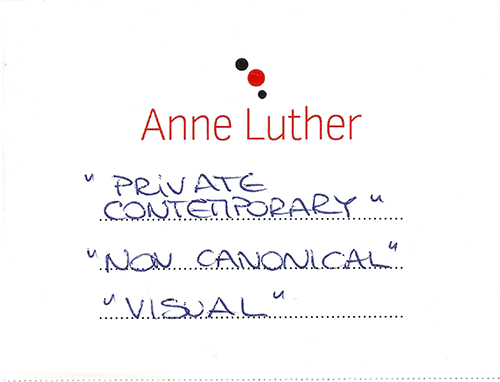 Anne Luther
" PRiVATE
CONTEMPORARY "
"NON CANONICAL"
"VISUAL"